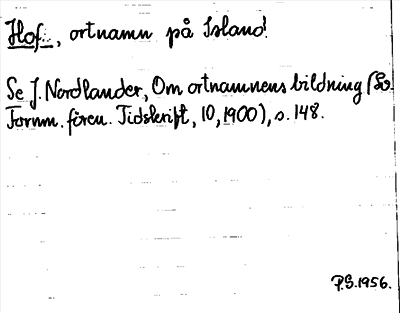 Hof, ortnamn på Island!
Se J. Nordlander, Om ortnamnens bildning (Sv.
Fornm. fören. Tidskrift, 10, 1900), s. 148.
P.S. 1956.